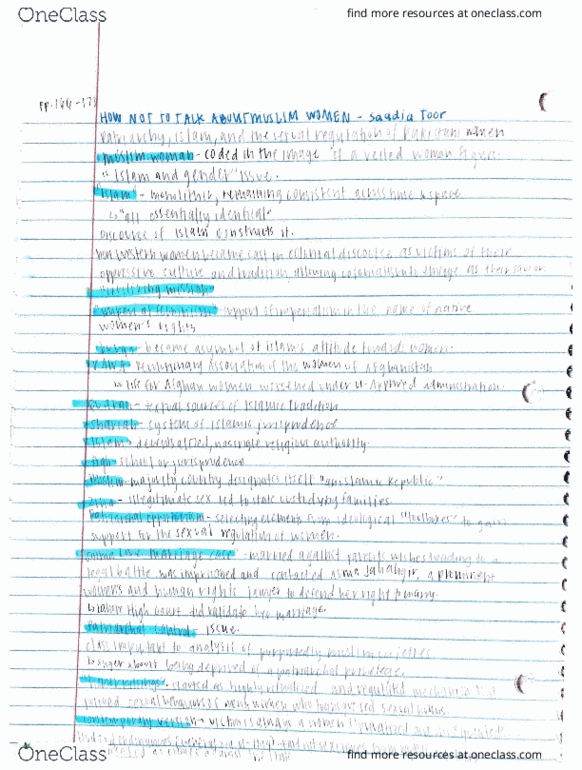 OneClass
find more resources at oneclass.com
pp. 166-173
HOW NOT TO TALK ABOUT MUSLIM WOMEN - Saadia Toor
Patriarchy, islam, and the sexual regulation of Pakistani women
muslim woman - coded in the image of a veiled woman figure.
"Islam and gender" issue.
"islam" - monolithic, remaining consistent across time & space
↳ "all essentially identical"
Discourse of islam constructs it.
non western women became cast in colonial discourse as victims of their
oppressive culture and tradition, allowing colonialism to emerge as their savior
"civilizing mission"
support of imperialism in the name of native
women's rights
became a symbol of islam's attitude towards women.
revolutionary Association of the women of Afghanistan
↳ life for Afghan women worsened under U-Approved administration.
textual sources of islamic tradition
shariah - system of islamic jurisprudence
islam - decentralized, no single religious authority.
school of jurisprudence
muslim majority country designates itself "an islamic republic"
zina - illegitimate sex led to state custody by families
patriarchal opportunism - selecting elements from ideological "toolboxes" to gain
support for the sexual regulation of women.
saima love marriage case - married against parents wishes leading to a
legal battle was imprisoned and contacted asma Jahangir, a prominent
women's and human rights lawyer to defend her right to marry.
↳ Lahore High court did validate her marriage.
patriarchal control issue.
class important to analysis of purportedly muslim societies
↳ anger about being deprived of a patriarchal privilege.
as highly ritualized and regulated mechanism that
sexual behaviours of men & women who transgressed sexual norms.
contemporary version - victim is always a women
OneClass
find more resources at oneclass.com